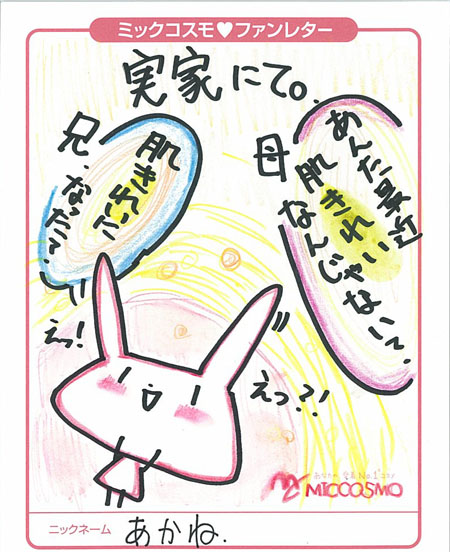 ミックコスモ♥ファンレター
実家にて。
母
あんた最近
肌きれい
なんじゃない?
兄
肌きれいに
なった?
えっ!
えっ?!
MICCOSMO
ニックネーム あかね.